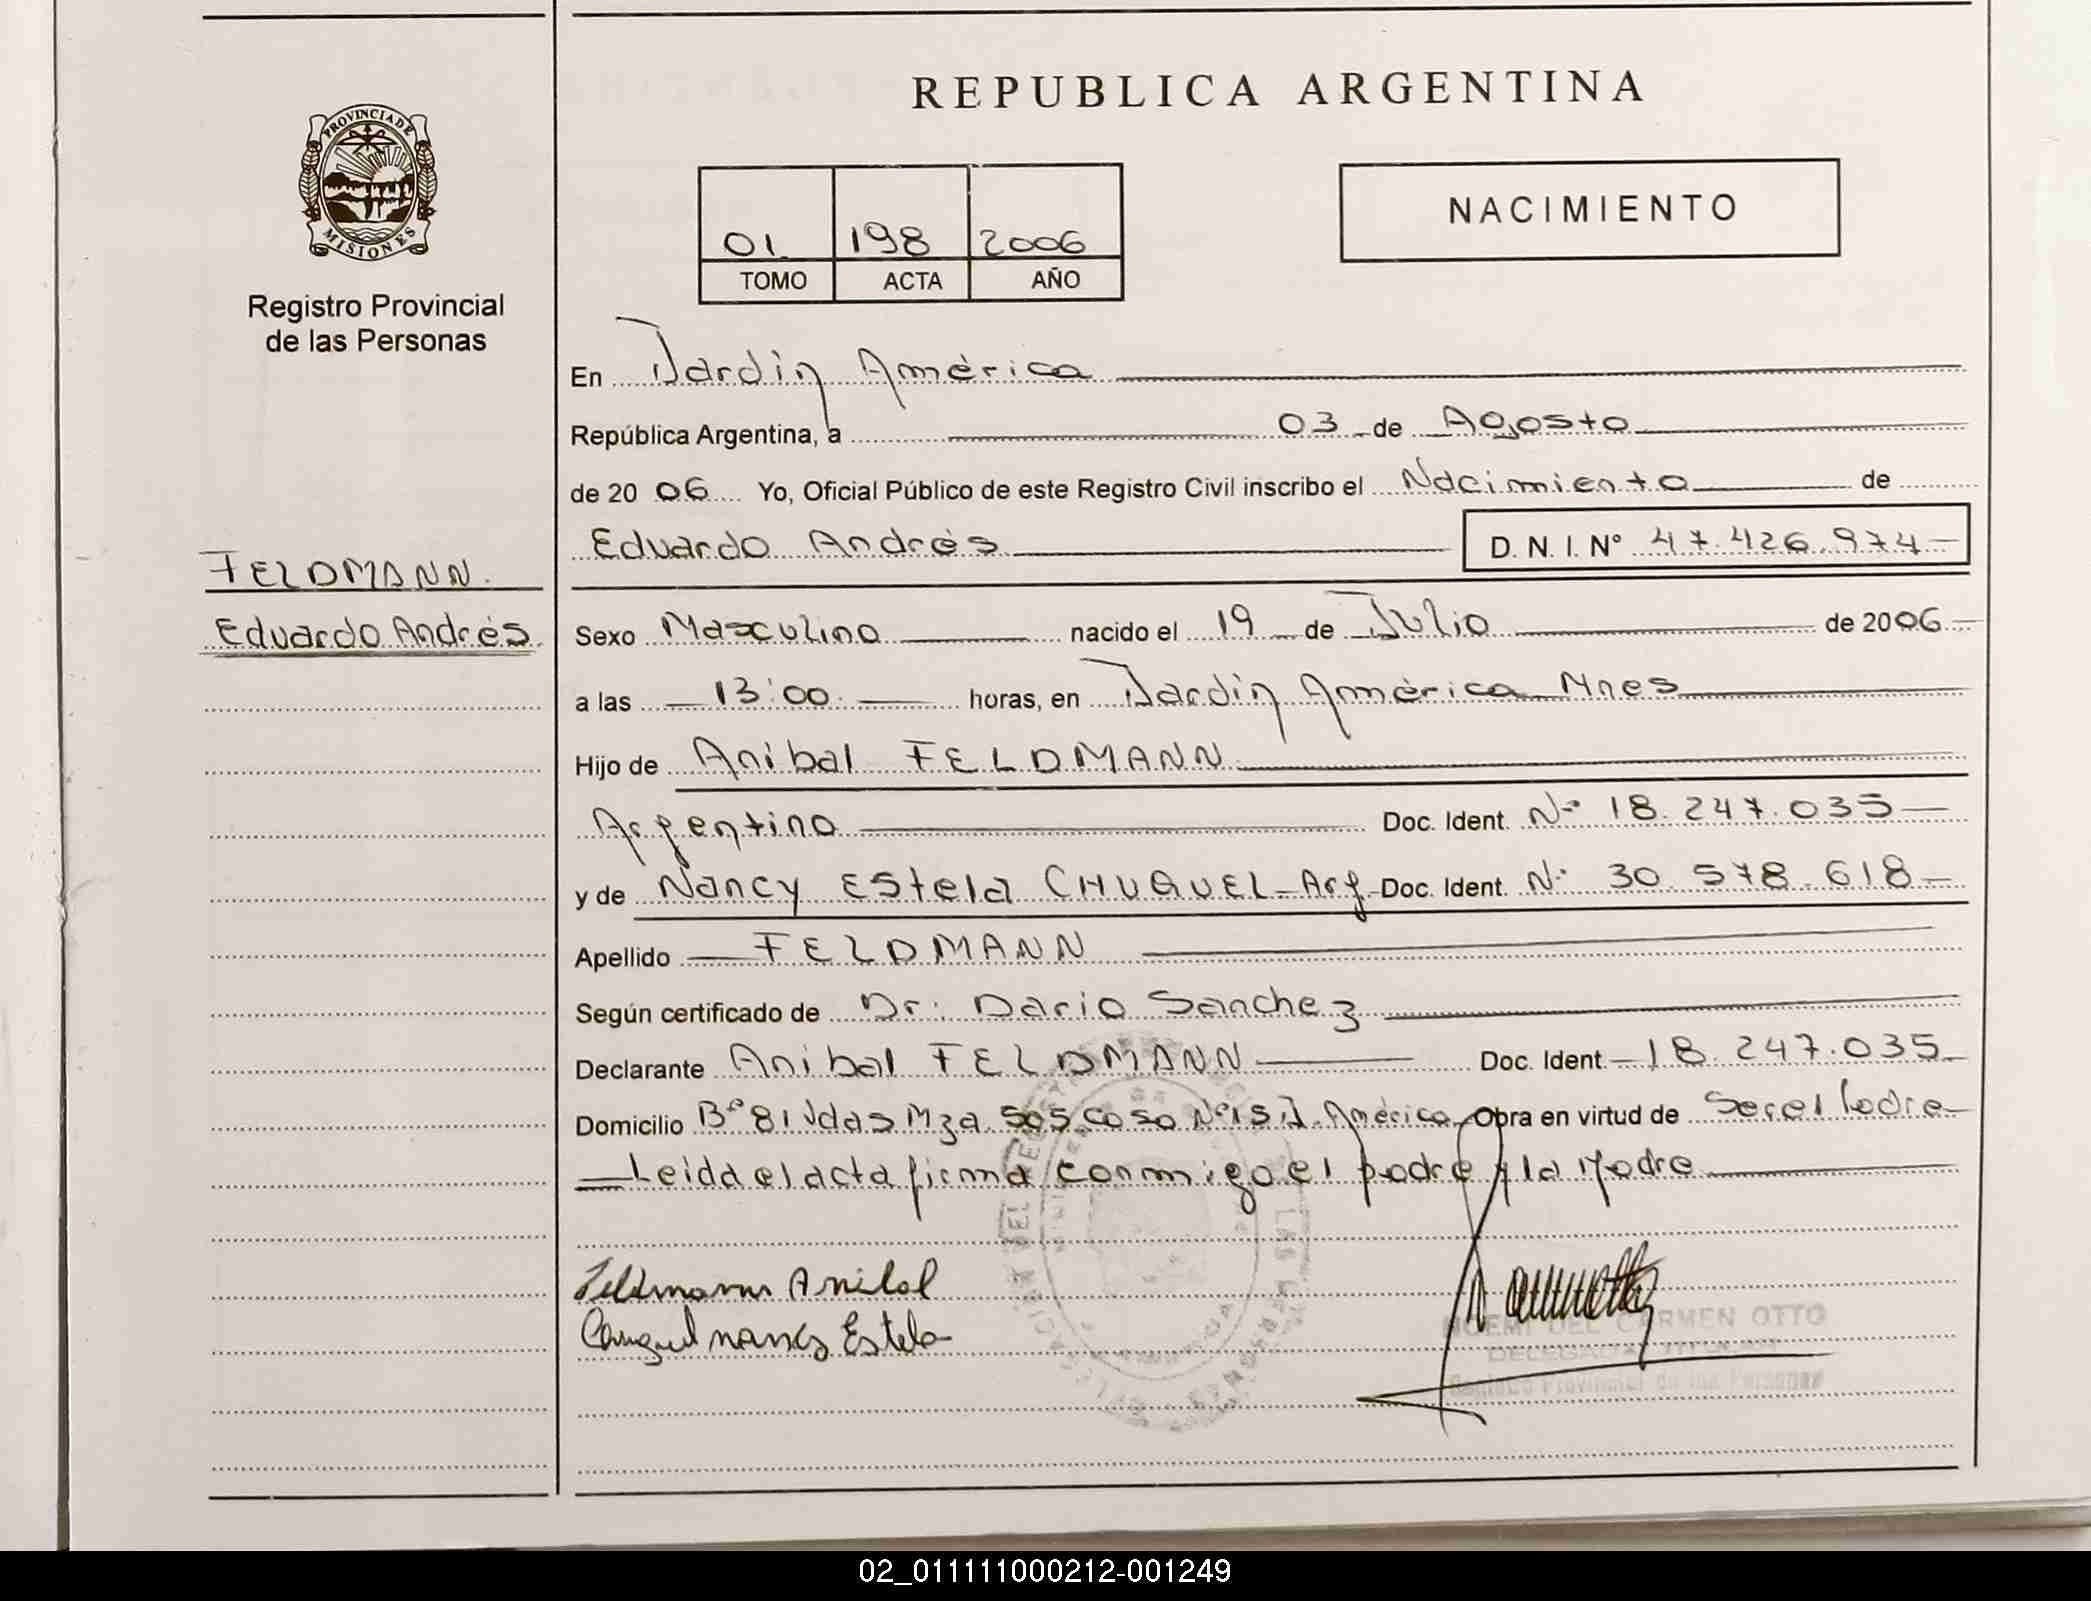 REPUBLICA ARGENTINA
PROVINCIA DE MISIONES
Registro Provincial
de las Personas
01 198 2006
TOMO ACTA AÑO
NACIMIENTO
En Jardín América
República Argentina, a 03 de Agosto
de 2006 Yo, Oficial Público de este Registro Civil inscribo el Nacimiento de
Eduardo Andrés D. N. I. Nº 47.426.974
FELDMANN
Eduardo Andrés
Sexo Masculino nacido el 19 de Julio de 2006
a las 13:00 horas, en Jardín América Mnes
Hijo de Anibal FELDMANN
Argentino Doc. Ident. Nº 18.247.035
y de Nancy Estela CHUQUEL Arg Doc. Ident. Nº 30.578.618
Apellido FELDMANN
Según certificado de Dr: Dario Sanchez
Declarante Anibal FELDMANN Doc. Ident. 18.247.035
Domicilio Bº 81 Vdas Mza 505 Casa Nº 15 J. América Obra en virtud de Ser el Padre
Leida el acta firma conmigo el padre y la Madre
Feldmann Anibal
Chuquel nancy Estela
NOEMI DEL CARMEN OTTO
DELEGADA TITULAR
Registro Provincial de las Personas
02_011111000212-001249